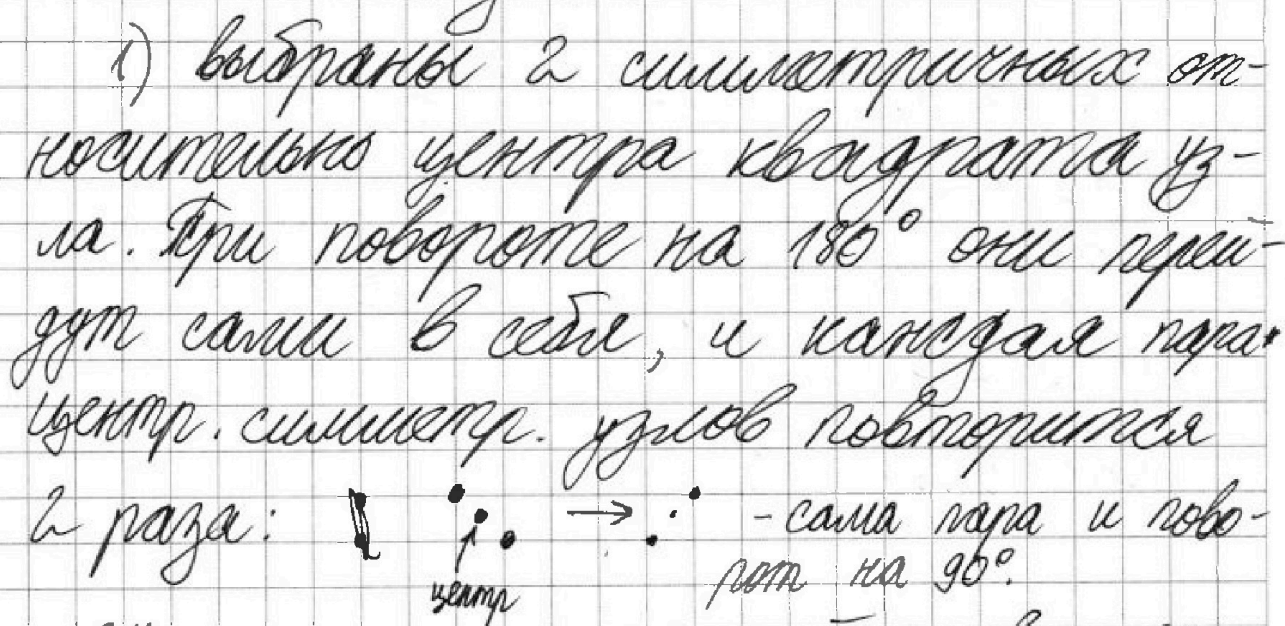 1) выбраны 2 симметричных от-
носительно центра квадрата уз-
ла. При повороте на 180° они перей-
дут сами в себя, и каждая пара
центр. симметр. узлов повторится
2 раза: → - сама пара и пово-
центр рот на 90°.